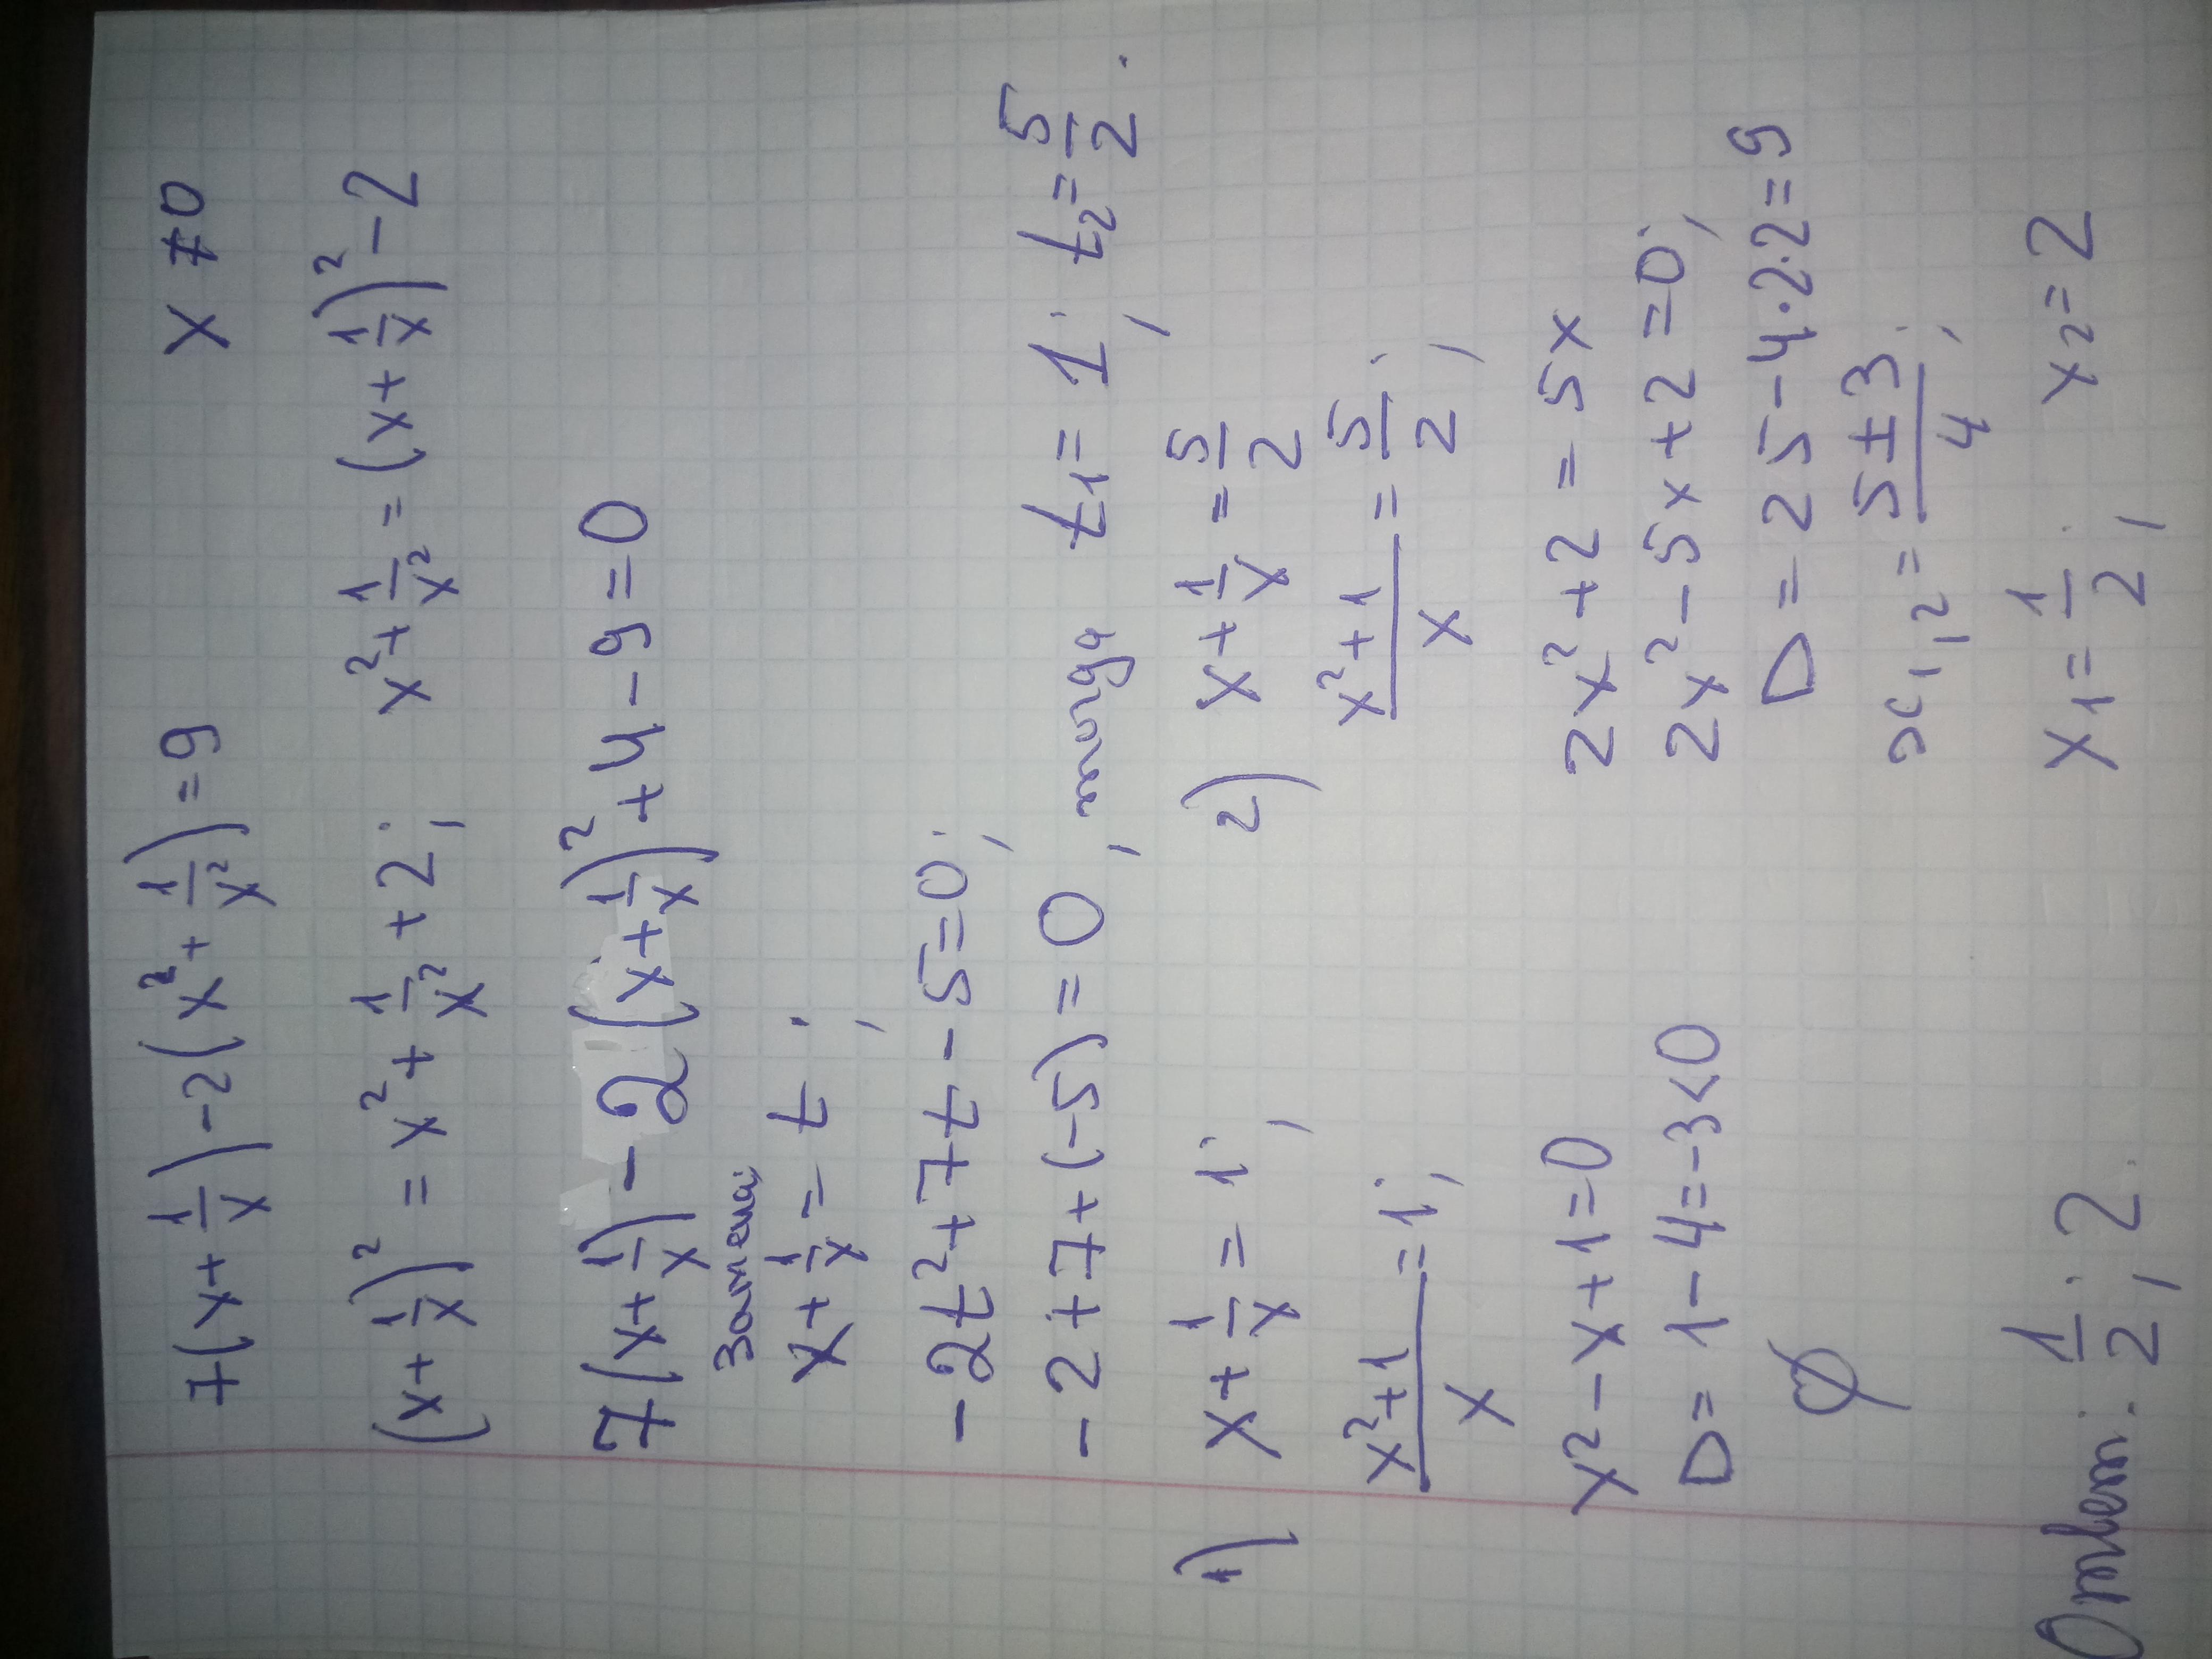 7(x+1/x)-2(x²+1/x²)=9 x≠0
(x+1/x)²=x²+1/x²+2; x²+1/x²=(x+1/x)²-2
7(x+1/x)-2(x+1/x)²+4-9=0
Замена:
x+1/x=t;
-2t²+7t-5=0;
-2+7+(-5)=0, тогда t₁=1; t₂=5/2.
1) x+1/x=1; 2) x+1/x=5/2
(x²+1)/x=1; (x²+1)/x=5/2;
x²-x+1=0 2x²+2=5x
D=1-4=-3<0 2x²-5x+2=0;
∅ D=25-4·2·2=9
x₁,₂=(5±3)/4;
x₁=1/2; x₂=2
Ответ: 1/2; 2.